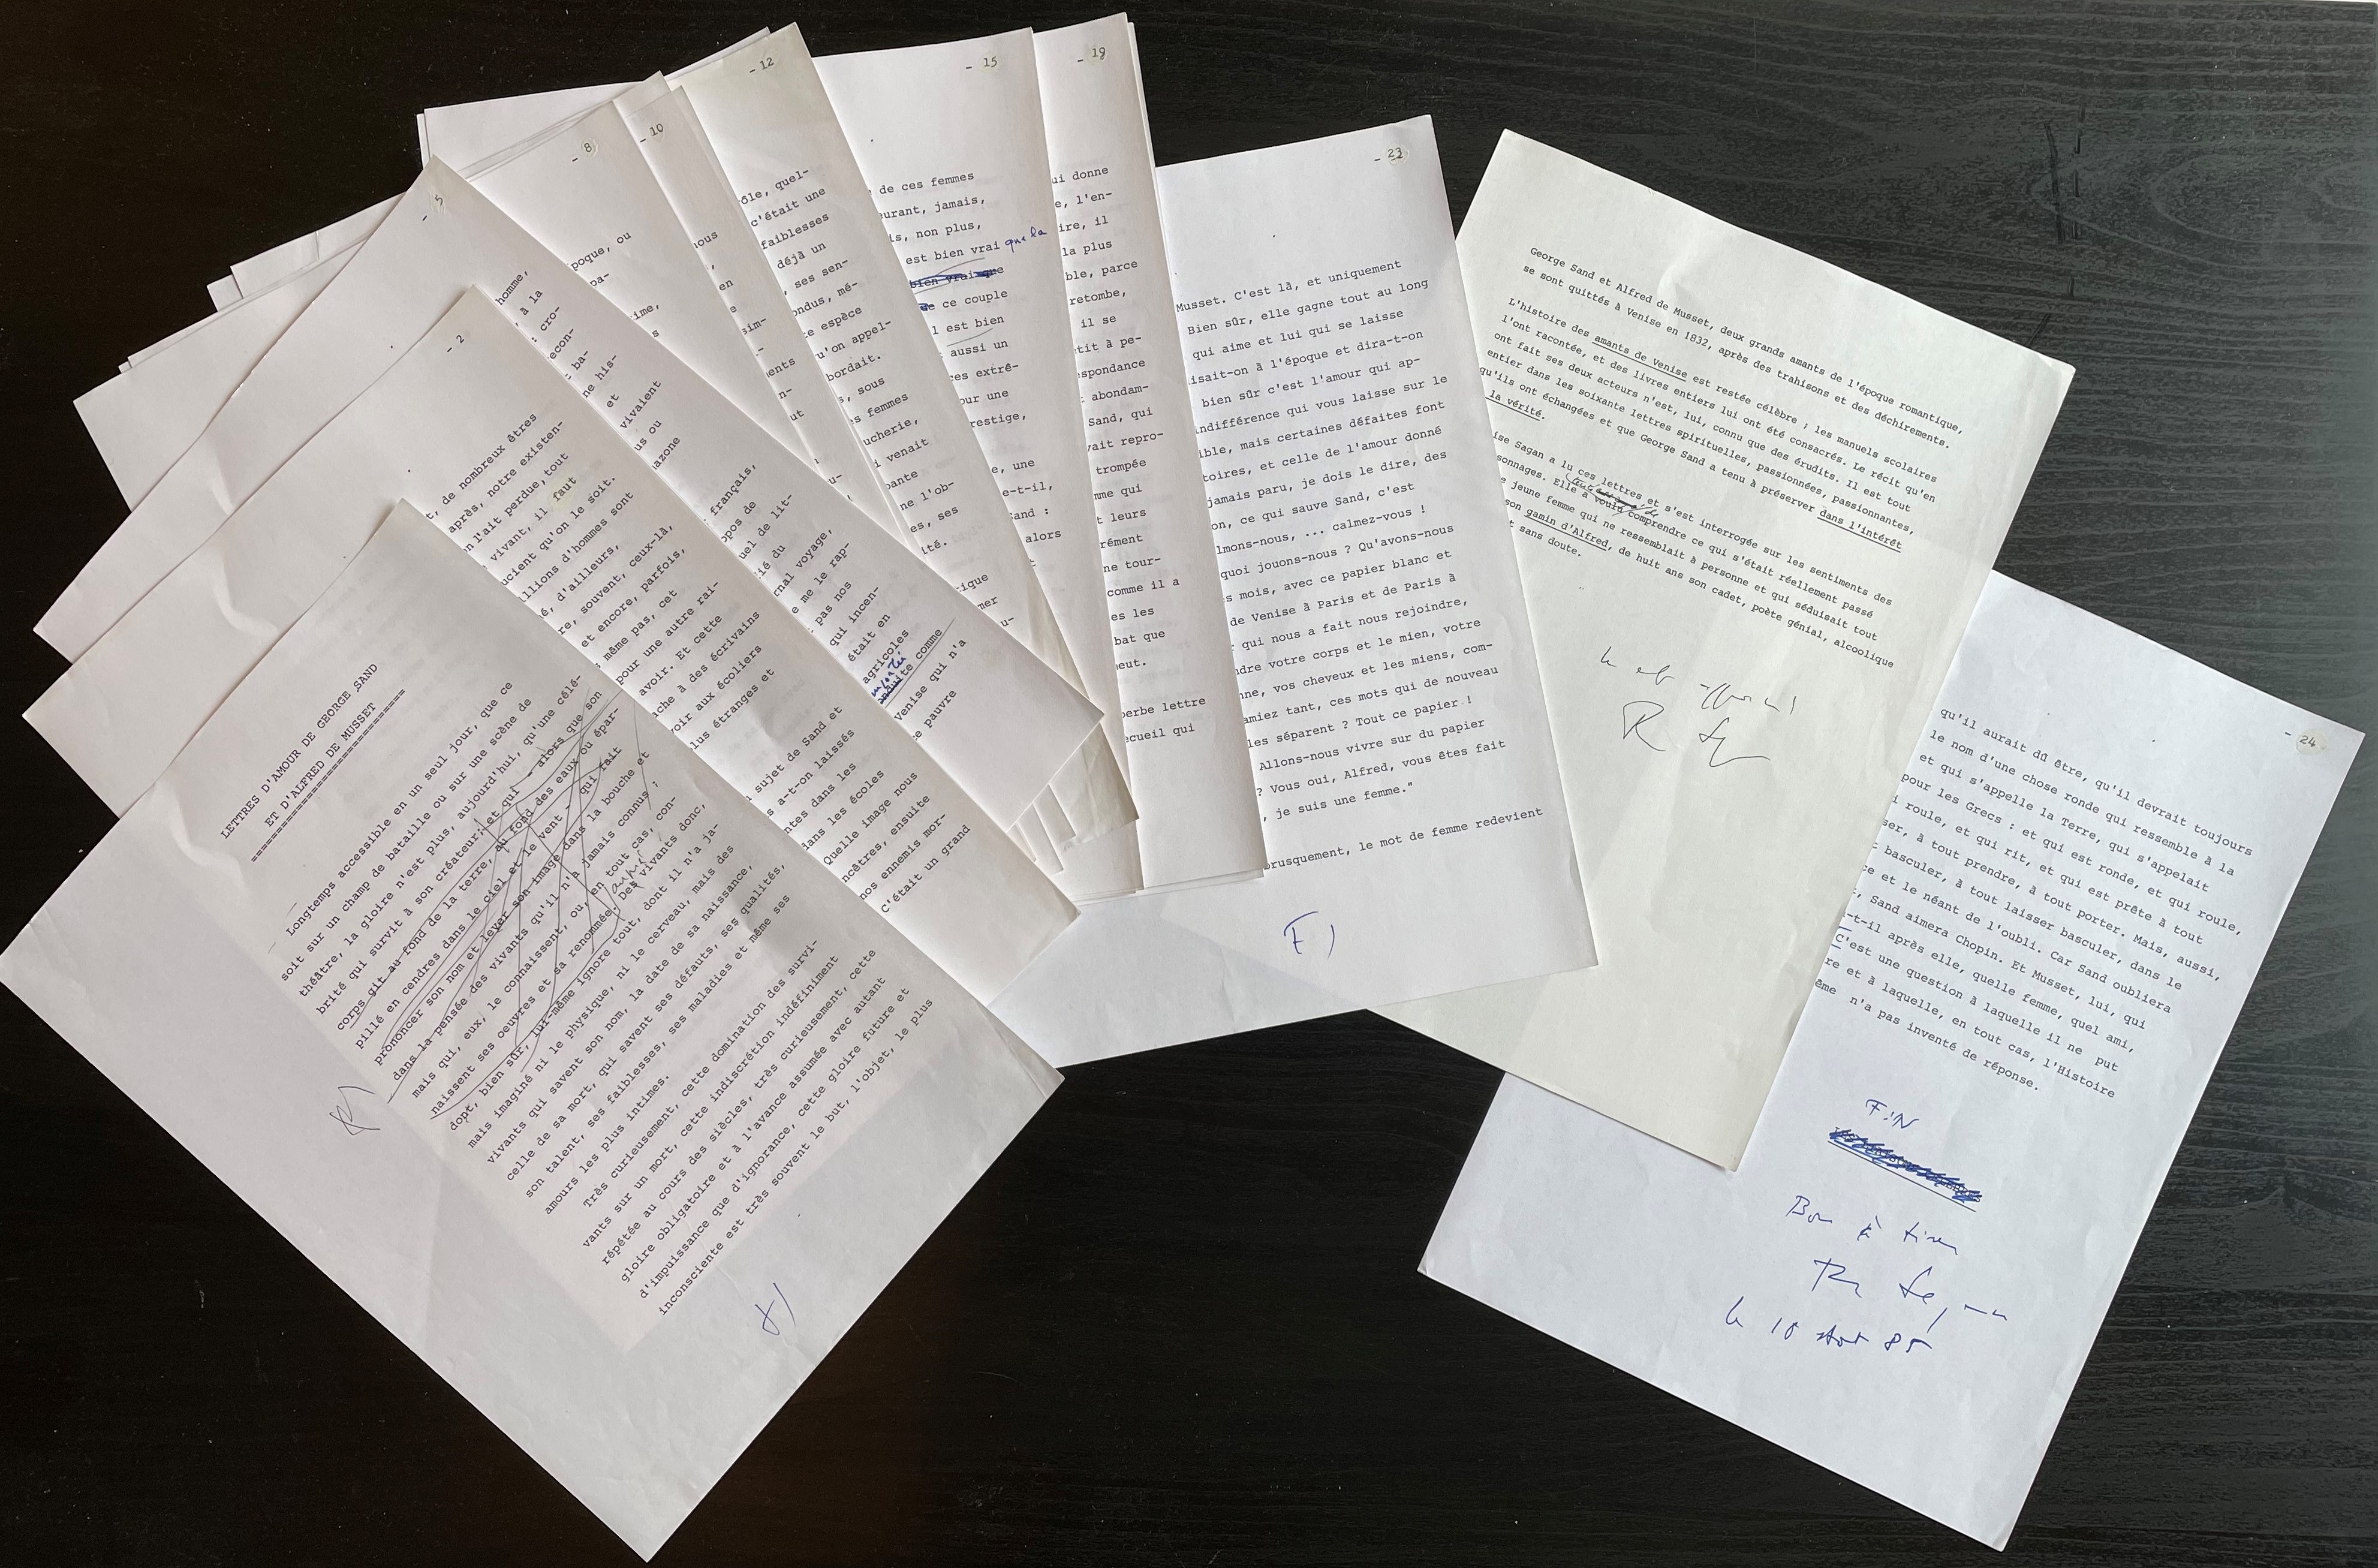 LETTRES D'AMOUR DE GEORGE SAND
ET D'ALFRED DE MUSSET
Longtemps accessible en un seul jour, que ce
soit sur un champ de bataille ou sur une scène de
théâtre, la gloire n'est plus, aujourd'hui, qu'une célé-
brité qui survit à son créateur; et qui - alors que son
corps gît au fond de la terre, au fond des eaux ou épar-
pillé en cendres dans le ciel et le vent - qui fait
prononcer son nom et lever son image dans la bouche et
dans la pensée des vivants qu'il n'a jamais connus ;
mais qui, eux, le connaissent, ou, en tout cas, con-
naissent ses oeuvres et sa renommée. Des vivants donc,
dont, bien sûr, lui-même ignore tout, dont il n'a ja-
mais imaginé ni le physique, ni le cerveau, mais des
vivants qui savent son nom, la date de sa naissance,
celle de sa mort, qui savent ses défauts, ses qualités,
son talent, ses faiblesses, ses maladies et même ses
amours les plus intimes.
Très curieusement, cette domination des survi-
vants sur un mort, cette indiscrétion indéfiniment
répétée au cours des siècles, très curieusement, cette
gloire obligatoire et à l'avance assumée avec autant
d'impuissance que d'ignorance, cette gloire future et
inconsciente est très souvent le but, l'objet, le plus
- 2
t, de nombreux êtres
après, notre existen-
n l'ait perdue, tout
vivant, il faut
ucient qu'on le soit.
llions d'hommes sont
é, d'ailleurs,
re, souvent, ceux-là,
et encore, parfois,
même pas, cet
pour une autre rai-
avoir. Et cette
ache à des écrivains
voir aux écoliers
lus étranges et
sujet de Sand et
s a-t-on laissés
ntes dans les
dans les écoles
Quelle image nous
ncêtres, ensuite
nos ennemis mor-
C'était un grand
- 5
homme,
, à la
: cro-
econ-
t ba-
ne his-
et
vivaient
us ou
azone
français,
opos de
uel de lit-
ié du
rnal voyage,
e me le rap-
pas nos
qui incen-
était en
agricoles
te comme
Venise qui n'a
te pauvre
- 8
poque, ou
pa-
ime,
s
- 10
nous
,
en
sim-
ments
n-
ut
- 12
ôle, quel-
c'était une
faiblesses
déjà un
, ses sen-
ondus, mé-
e espèce
u'on appel-
bordait.
s, sous
es femmes
ucherie,
i venait
pante
ne l'ob-
es, ses
ité.
rique
mer
u-
- 15
de ces femmes
eurant, jamais,
is, non plus,
est bien vrai que la
bien vrai que
ce couple
l est bien
aussi un
ces extrê-
our une
restige,
e, une
e-t-il,
Sand :
alors
- 19
ui donne
e, l'en-
ire, il
la plus
ble, parce
retombe,
il se
tit à pe-
spondance
t abondam-
Sand, qui
vait repro-
trompée
mme qui
t leurs
rément
ne tour-
comme il a
es les
bat que
eut.
perbe lettre
ecueil qui
- 23
Musset. C'est là, et uniquement
Bien sûr, elle gagne tout au long
qui aime et lui qui se laisse
isait-on à l'époque et dira-t-on
bien sûr c'est l'amour qui ap-
indifférence qui vous laisse sur le
ible, mais certaines défaites font
toires, et celle de l'amour donné
jamais paru, je dois le dire, des
on, ce qui sauve Sand, c'est
lmons-nous, ... calmez-vous !
quoi jouons-nous ? Qu'avons-nous
s mois, avec ce papier blanc et
de Venise à Paris et de Paris à
qui nous a fait nous rejoindre,
ndre votre corps et le mien, votre
nne, vos cheveux et les miens, com-
amiez tant, ces mots qui de nouveau
les séparent ? Tout ce papier !
Allons-nous vivre sur du papier
? Vous oui, Alfred, vous êtes fait
, je suis une femme."
brusquement, le mot de femme redevient
F)
George Sand et Alfred de Musset, deux grands amants de l'époque romantique,
se sont quittés à Venise en 1832, après des trahisons et des déchirements.
L'histoire des amants de Venise est restée célèbre ; les manuels scolaires
l'ont racontée, et des livres entiers lui ont été consacrés. Le récit qu'en
ont fait ses deux acteurs n'est, lui, connu que des érudits. Il est tout
entier dans les soixante lettres spirituelles, passionnées, passionnantes,
qu'ils ont échangées et que George Sand a tenu à préserver dans l'intérêt
la vérité.
ise Sagan a lu ces lettres et s'est interrogée sur les sentiments des
sonnages. Elle a voulu comprendre ce qui s'était réellement passé
e jeune femme qui ne ressemblait à personne et qui séduisait tout
son gamin d'Alfred, de huit ans son cadet, poète génial, alcoolique
t sans doute.
- 24
qu'il aurait dû être, qu'il devrait toujours
le nom d'une chose ronde qui ressemble à la
et qui s'appelle la Terre, qui s'appelait
pour les Grecs : et qui est ronde, et qui roule,
i roule, et qui rit, et qui est prête à tout
ser, à tout prendre, à tout porter. Mais, aussi,
t basculer, à tout laisser basculer, dans le
ce et le néant de l'oubli. Car Sand oubliera
, Sand aimera Chopin. Et Musset, lui, qui
-t-il après elle, quelle femme, quel ami,
C'est une question à laquelle il ne put
re et à laquelle, en tout cas, l'Histoire
ême n'a pas inventé de réponse.
FIN
Bon à tirer
le 10 Aout 85